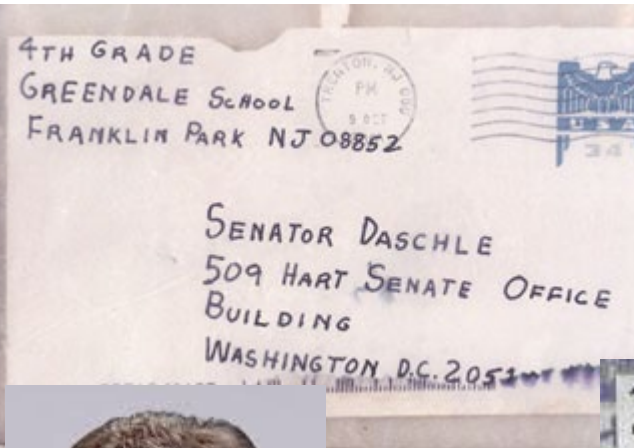 4TH GRADE
GREENDALE SCHOOL
FRANKLIN PARK NJ 08852
TRENTON, NJ
PM
9 OCT
USA
34
SENATOR DASCHLE
509 HART SENATE OFFICE
BUILDING
WASHINGTON D.C. 2051